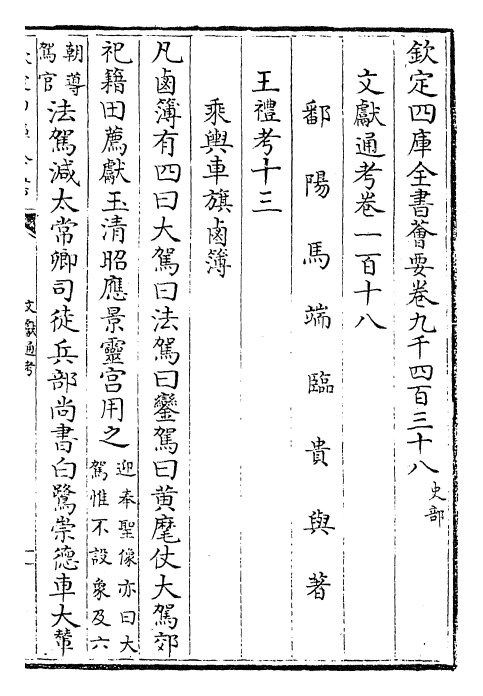 欽定四庫全書薈要卷九千四百三十八 史部
文獻通考卷一百十八
鄱陽馬端臨貴與著
王禮考十三
乘輿車旗鹵簿
凡鹵簿有四曰大駕曰法駕曰鑾駕曰黄麾仗大駕郊
祀籍田薦獻玉清昭應景靈宫用之迎奉聖像亦曰大
駕惟不設象及六
朝導
駕官法駕減太常卿司徒兵部尚書白鷺崇德車大輦
文獻通考